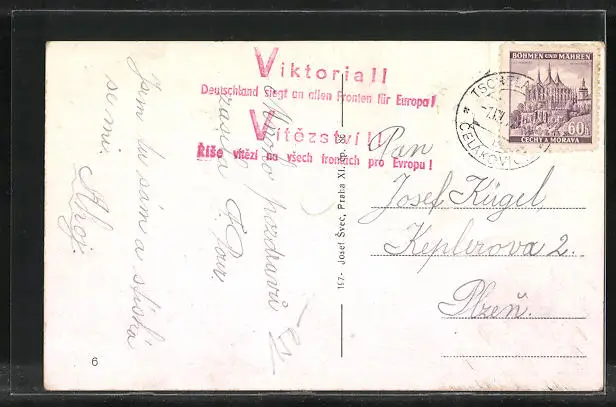 Viktoria!!
Deutschland siegt an allen Fronten für Europa!
Vítězství!!
Říše vítězí na všech frontách pro Evropu!
BÖHMEN UND MÄHREN
60h
ČECHY A MORAVA
ČELAKOVIC
Mnoho pozdravů
zasílá
Jsem tu sám a stýská
se mi. Ahoj.
Pan
Josef Kügel
Keplerova 2.
Plzeň.
197- Josef Švec, Praha XI.
6